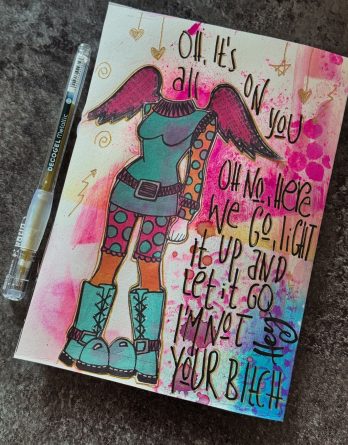 OH. It's
all ON YOU
OH NO, HERE
WE GO, LIGHT
it UP AND
LET it GO
I'M NOT
Hey
YOUR BITCH
DECOGEL metallic